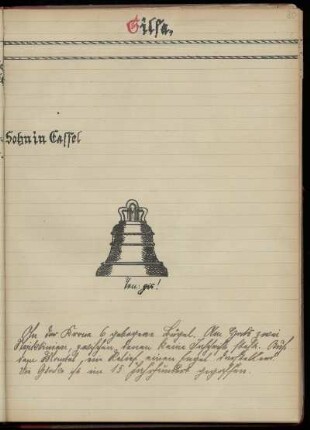 Gilsa.
Sohn in Cassel
Ton: gis!
An der Krone 6 gebogene Bügel. Am Hals zwei
zwischen denen keine Inschrift steht. Auf
dem Mantel, ein Relief, einen Engel darstellend.
Die Glocke ist im 15 Jahrhundert gegossen.